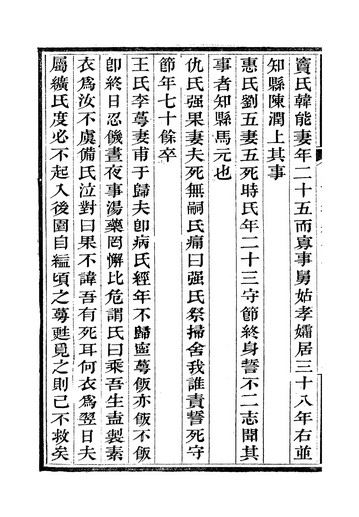 竇氏韓能妻年二十五而寡事舅姑孝孀居三十八年右並
知縣陳潤上其事
惠氏劉五妻五死時氏年二十三守節終身誓不二志聞其
事者知縣馬元也
仇氏强果妻夫死無嗣氏痛曰强氏祭掃舍我誰責誓死守
節年七十餘卒
王氏李蕚妻甫于歸夫卽病氏經年不歸寧蕚飯亦飯不飯
卽終日忍饑晝夜事湯藥罔懈比危謂氏曰乘吾生盍製素
衣爲汝不虞備氏泣對曰果不諱吾有死耳何衣爲翌日夫
屬纊氏度必不起入後園自縊頃之蕚甦覓之則已不救矣